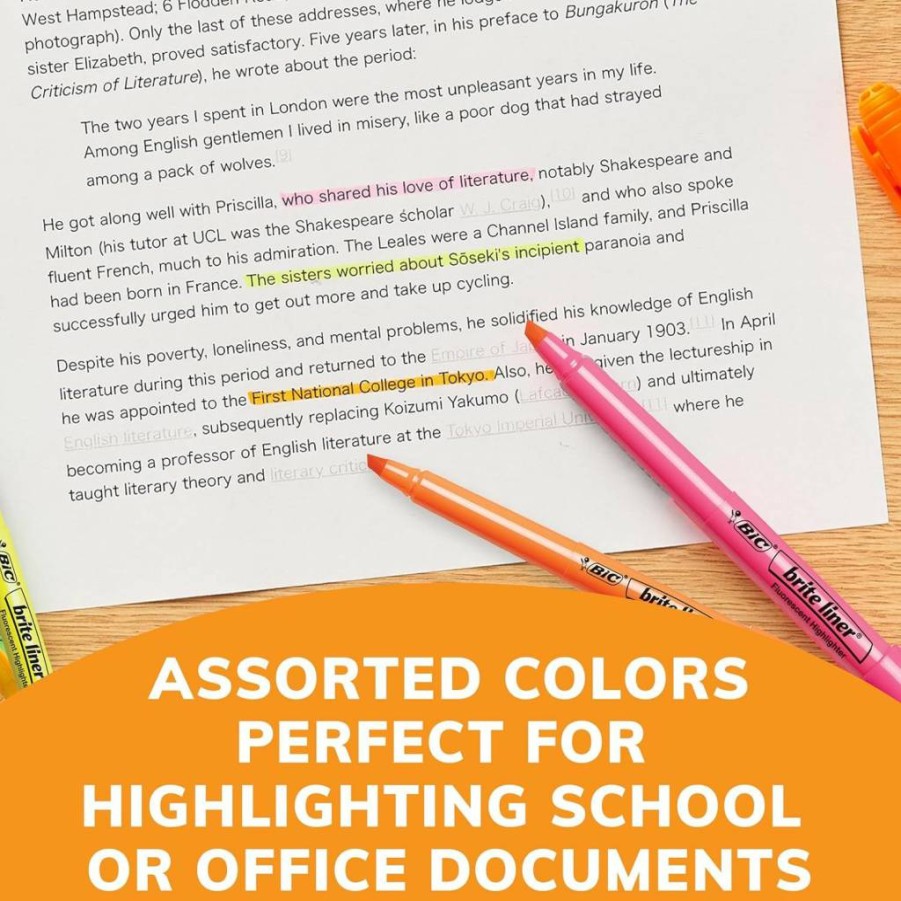 West Hampstead; 6
photograph). Only the last of these addresses, where he
sister Elizabeth, proved satisfactory. Five years later, in his preface to Bungakuron (The
Criticism of Literature), he wrote about the period:
The two years I spent in London were the most unpleasant years in my life.
Among English gentlemen I lived in misery, like a poor dog that had strayed
among a pack of wolves.[9]
He got along well with Priscilla, who shared his love of literature, notably Shakespeare and
Milton (his tutor at UCL was the Shakespeare scholar W. J. Craig),[10] and who also spoke
fluent French, much to his admiration. The Leales were a Channel Island family, and Priscilla
had been born in France. The sisters worried about Sōseki's incipient paranoia and
successfully urged him to get out more and take up cycling.
Despite his poverty, loneliness, and mental problems, he solidified his knowledge of English
literature during this period and returned to the Empire of in January 1903.[11] In April
he was appointed to the First National College in Tokyo. Also, he given the lectureship in
English literature, subsequently replacing Koizumi Yakumo ( ) and ultimately
becoming a professor of English literature at the Tokyo Imperial [11] where he
taught literary theory and literary
BIC brite liner®
Fluorescent Highlighter
BIC brite
BIC brite liner
Fluorescent Highlighter
ASSORTED COLORS
PERFECT FOR
HIGHLIGHTING SCHOOL
OR OFFICE DOCUMENTS